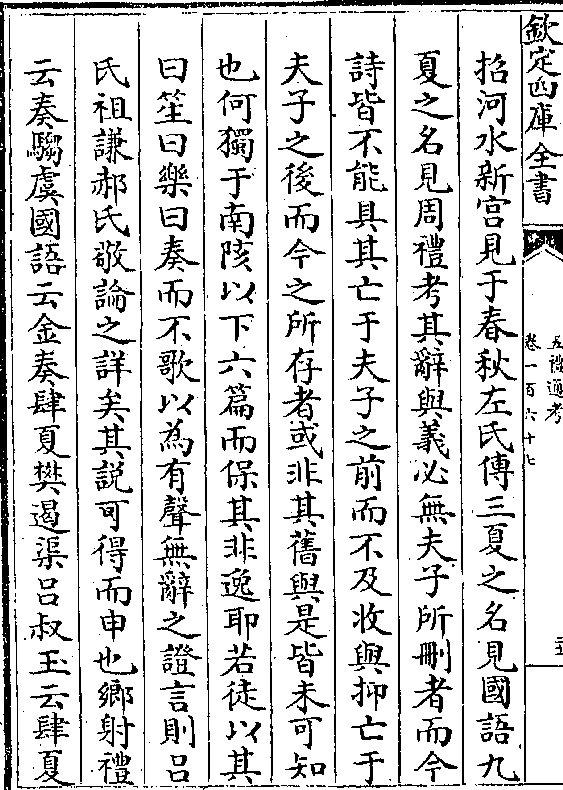 欽定四庫全書
五禮通考
卷一百六十七
招河水新宫見于春秋左氏傳三夏之名見國語九
夏之名見周禮考其辭與義必無夫子所刪者而今
詩皆不能具其亡于夫子之前而不及收與抑亡于
夫子之後而今之所存者或非其舊與是皆未可知
也何獨于南陔以下六篇而保其非逸耶若徒以其
曰笙曰樂曰奏而不歌以為有聲無辭之證言則吕
氏祖謙郝氏敬論之詳矣其説可得而申也鄉射禮
云奏騶虞國語云金奏肆夏樊遏渠吕叔玉云肆夏